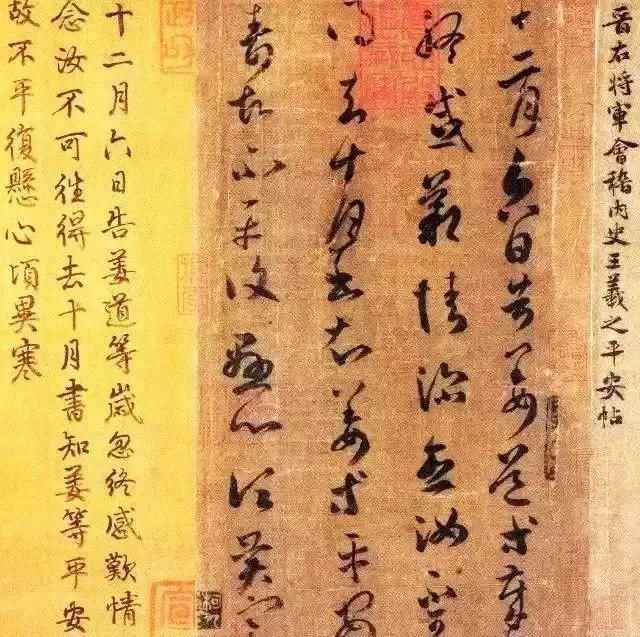 晉右將軍會稽内史王羲之平安帖
十二月六日告姜道等歲
終感歎情深念汝不可
得去十月書知姜等平安
壽故不平復懸心頃異寒
十二月六日告姜道等歲忽終感歎情
念汝不可往得去十月書知姜等平安
故不平復懸心頃異寒